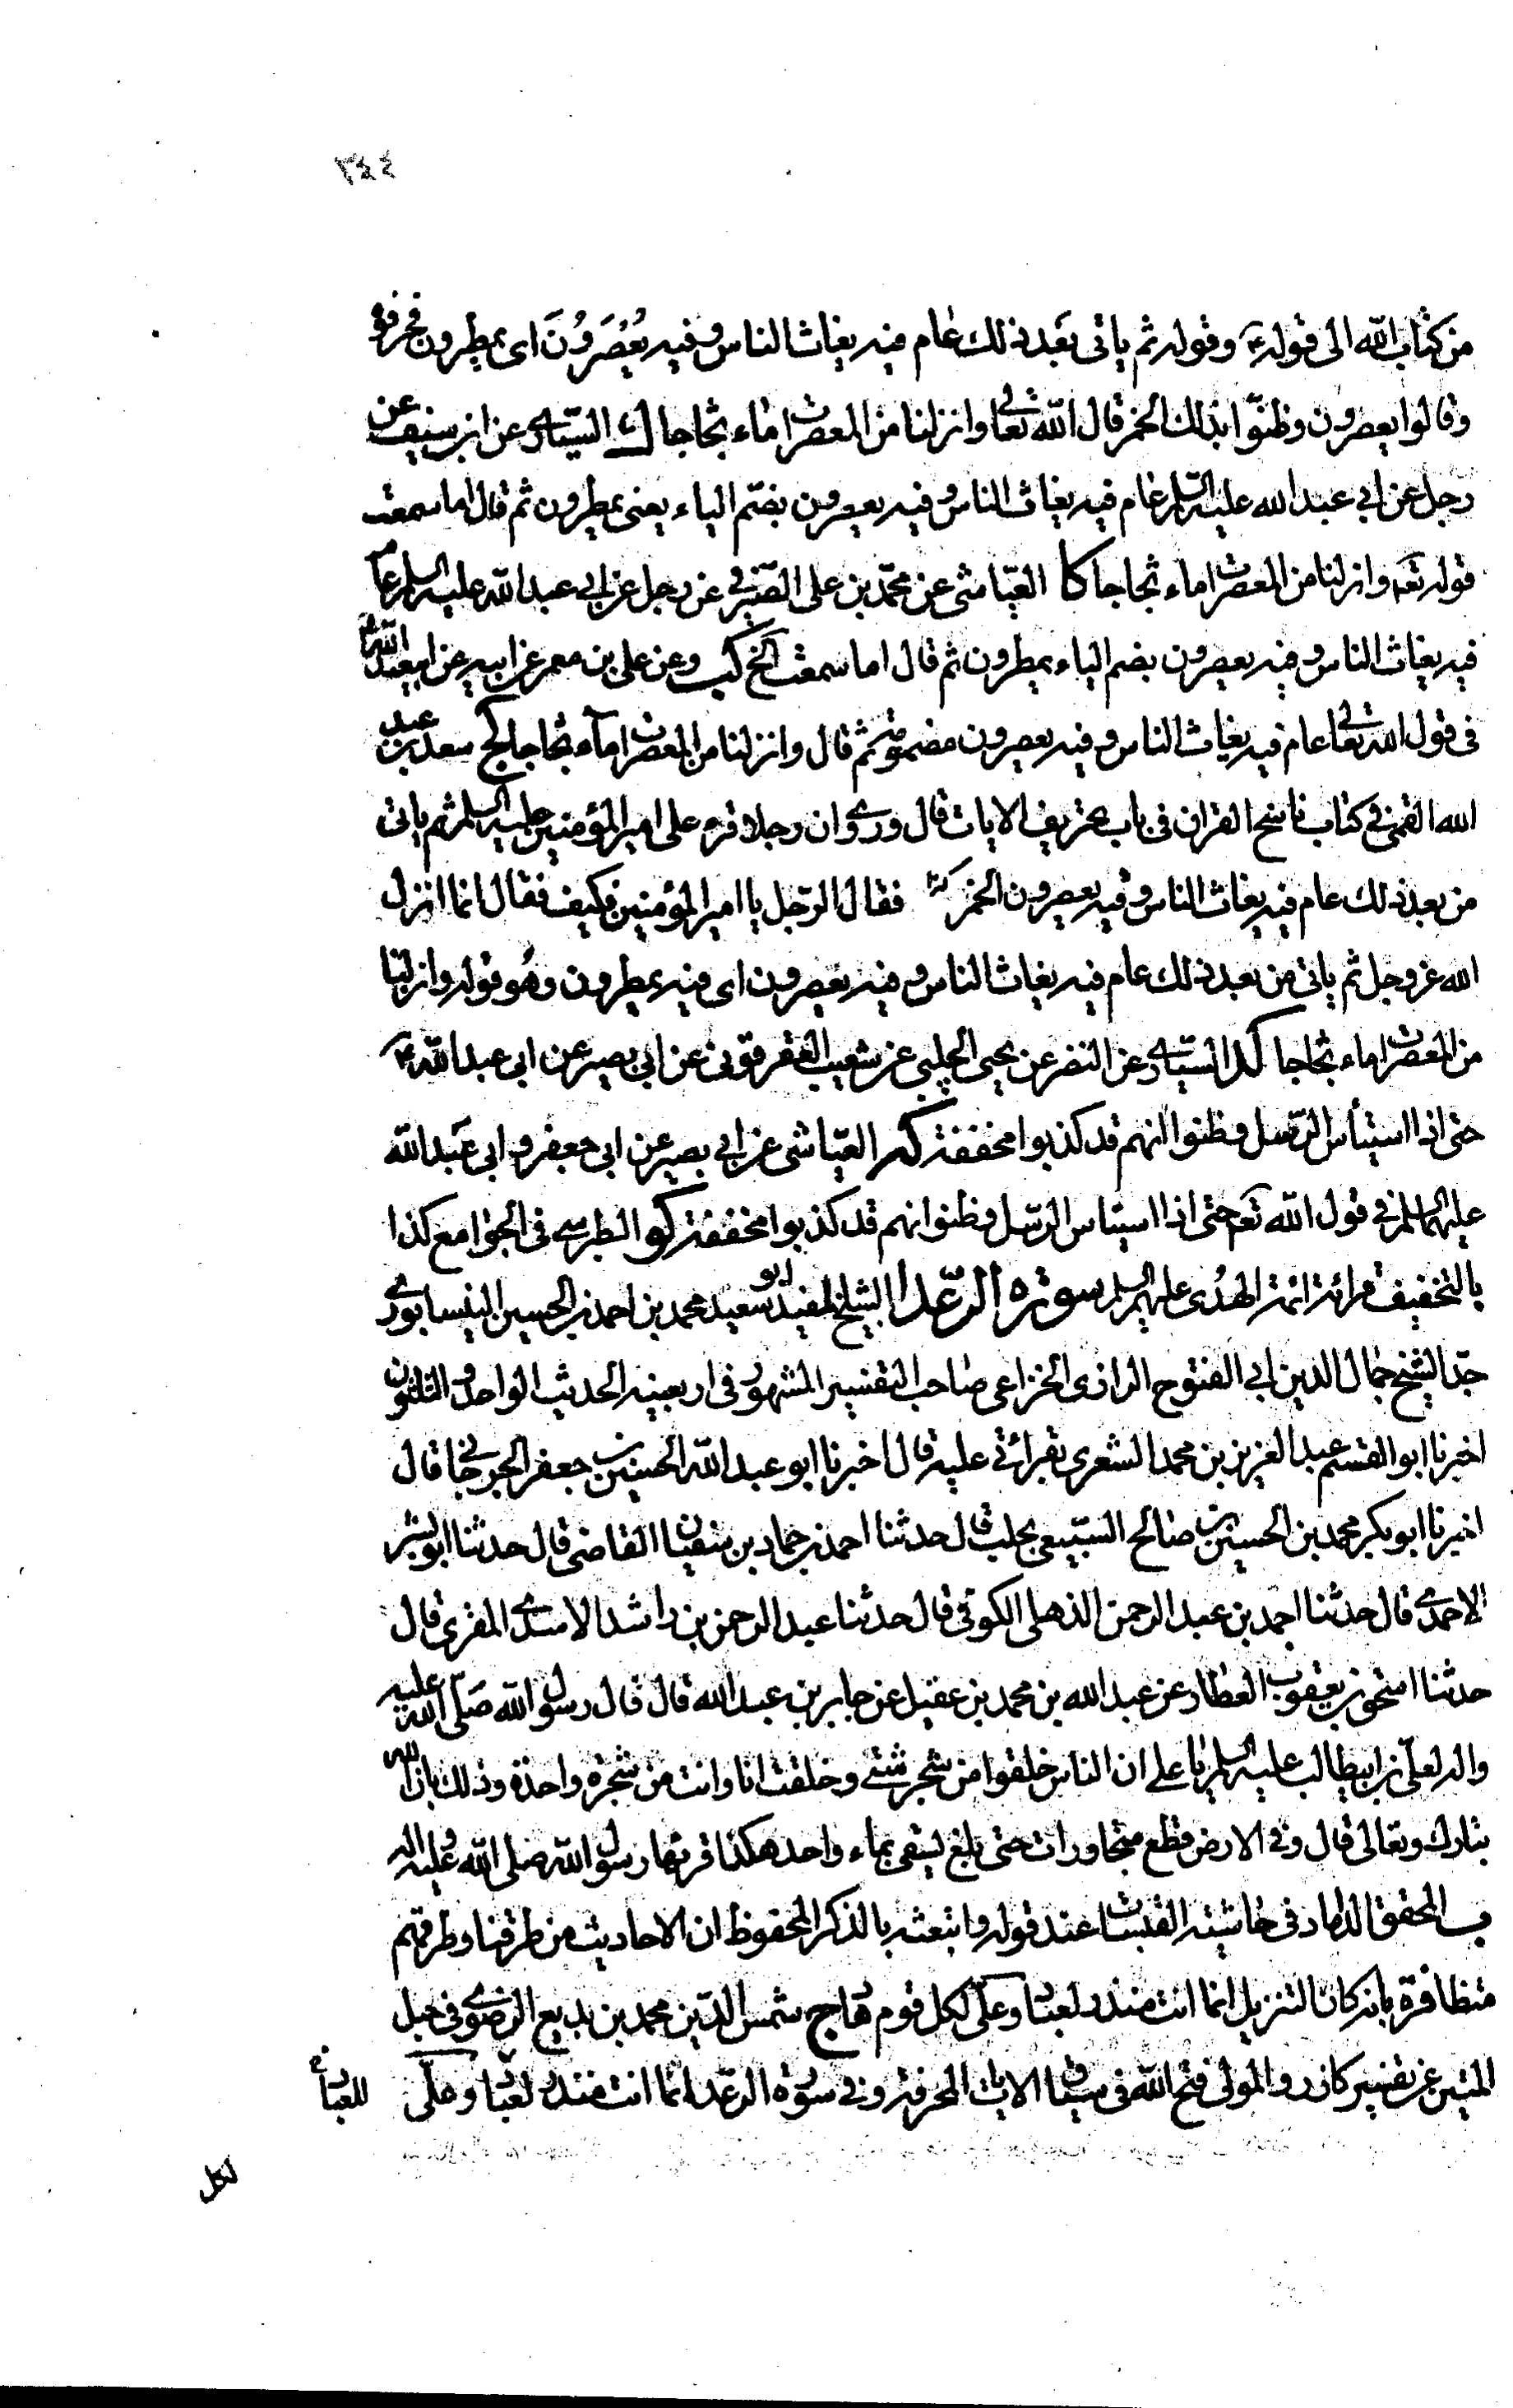 ٣٤٤
من كتاب الله الى قوله ع وقوله ثم ياتى بعد ذلك عام فيه يغاث الناس وفيه يُعْصَرُونَ اى يمطرون فحرفوه
وقالوا يعصرون وظنوا بذلك الخمر قال الله تعالى وانزلنا من المعصرات ماء ثجاجا السيارى عن ابن سيف عن
رجل عن ابي عبد الله عليه السلم عام فيه يغاث الناس وفيه يعصرون بضم الياء يعنى يمطرون ثم قال اما سمعت
قوله تعم وانزلنا من المعصرات ماء ثجاجا كا العياشى عن محمد بن على الصيرفى عن رجل عن ابي عبد الله عليه السلم عام
فيه يغاث الناس وفيه يعصرون بضم الياء يمطرون ثم قال اما سمعت الخ كب وعن على بن معمر عن ابيه عن ابيعبد الله ع
فى قول الله تعالى عام فيه يغاث الناس وفيه يعصرون مضمومة ثم قال وانزلنا من المعصرات ماء ثجاجا كج سعد بن عبد
الله القمى فى كتاب ناسخ القران فى باب تحريف الايات قال وروى ان رجلا قرء على امير المؤمنين عليه السلم ثم ياتى
من بعد ذلك عام فيه يغاث الناس وفيه يعصرون الخمر فقال الرجل يا امير المؤمنين فكيف فقال انما انزل
الله عز وجل ثم ياتى من بعد ذلك عام فيه يغاث الناس وفيه يعصرون اى فيه يمطرون وهو قوله وانزلنا
من المعصرات ماء ثجاجا كد السيارى عن النضر عن يحيى الحلبى عن شعيب العقرقوفى عن ابى بصير عن ابى عبد الله ع
حتى اذا استيأس الرسل وظنوا انهم قد كذبوا مخففة كه العياشى عن ابي بصير عن ابى جعفر و ابى عبد الله
عليهما السلم فى قول الله تعم حتى اذا استيأس الرسل وظنوا انهم قد كذبوا مخففة كو الطبرسى فى الجوامع كذا
بالتخفيف قرائة ائمة الهدى عليهم السلم سورة الرعد ا الشيخ المفيد ابو سعيد محمد بن احمد بن الحسين النيسابورى
جد الشيخ جمال الدين ابي الفتوح الرازى الخزاعى صاحب التفسير المشهور فى اربعينه الحديث الواحد والثلثون
اخبرنا ابو القسم عبد العزيز بن محمد الشعرى بقرائتى عليه قال اخبرنا ابو عبد الله الحسين بن جعفر الجرجانى قال
اخبرنا ابو بكر محمد بن الحسين بن صالح السبيعى بحلب قال حدثنا احمد بن حماد بن سفيان القاضى قال حدثنا ابو بشر
الاحمدى قال حدثنا احمد بن عبد الرحمن الذهلى الكوفى قال حدثنا عبد الرحمن بن راشد الاسدى المقرى قال
حدثنا اسحق بن يعقوب العطار عن عبد الله بن محمد بن عقيل عن جابر بن عبد الله قال قال رسول الله صلى الله عليه
واله لعلى بن ابيطالب عليه السلم يا على ان الناس خلقوا من شجر شتى وخلقت انا وانت من شجرة واحدة وذلك بان الله
تبارك وتعالى قال وفى الارض قطع متجاورات حتى بلغ تسقى بماء واحد هكذا قرئها رسول الله صلى الله عليه واله
ب المحقق الداماد فى حاشية القبسات عند قوله وابتعثه بالذكر المحفوظ ان الاحاديث من طرقنا وطرقهم
متظافرة بانه كان التنزيل انما انت منذر لعباد وعلى لكل قوم هاد ج شمس الدين محمد بن بديع الرضوى فى حبل
المتين عن تفسير كازر والمولى فتح الله فى سياق الايات المحرفة وفى سورة الرعد انما انت منذر لعباد وعلى للعباد خ
لكل